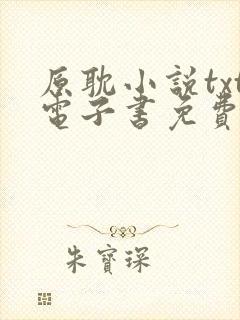 原耽小説txt
電子書免費
朱寶琛